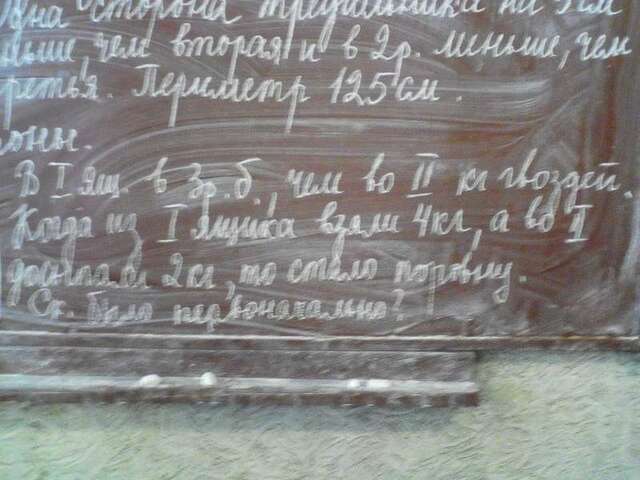 сторона треугольника на 5 см
ньше, чем вторая и в 2 р. меньше, чем
ретья. Периметр 125 см.
роны.
В I ящ. в 3 р. б., чем во II кг гвоздей.
Когда из I ящика взяли 4 кг, а во II
досыпали 2 кг, то стало поровну.
Ск. было первоначально?